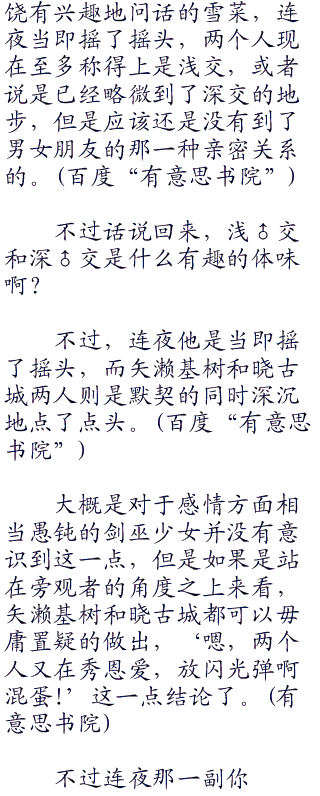 饶有兴趣地问话的雪菜，连
夜当即摇了摇头，两个人现
在至多称得上是浅交，或者
说是已经略微到了深交的地
步，但是应该还是没有到了
男女朋友的那一种亲密关系
的。(百度“有意思书院”)
不过话说回来，浅♂交
和深♂交是什么有趣的体味
啊？
不过，连夜他是当即摇
了摇头，而矢濑基树和晓古
城两人则是默契的同时深沉
地点了点头。(百度“有意思
书院”)
大概是对于感情方面相
当愚钝的剑巫少女并没有意
识到这一点，但是如果是站
在旁观者的角度之上来看，
矢濑基树和晓古城都可以毋
庸置疑的做出，‘嗯，两个
人又在秀恩爱，放闪光弹啊
混蛋!’这一点结论了。(有
意思书院)
不过连夜那一副你